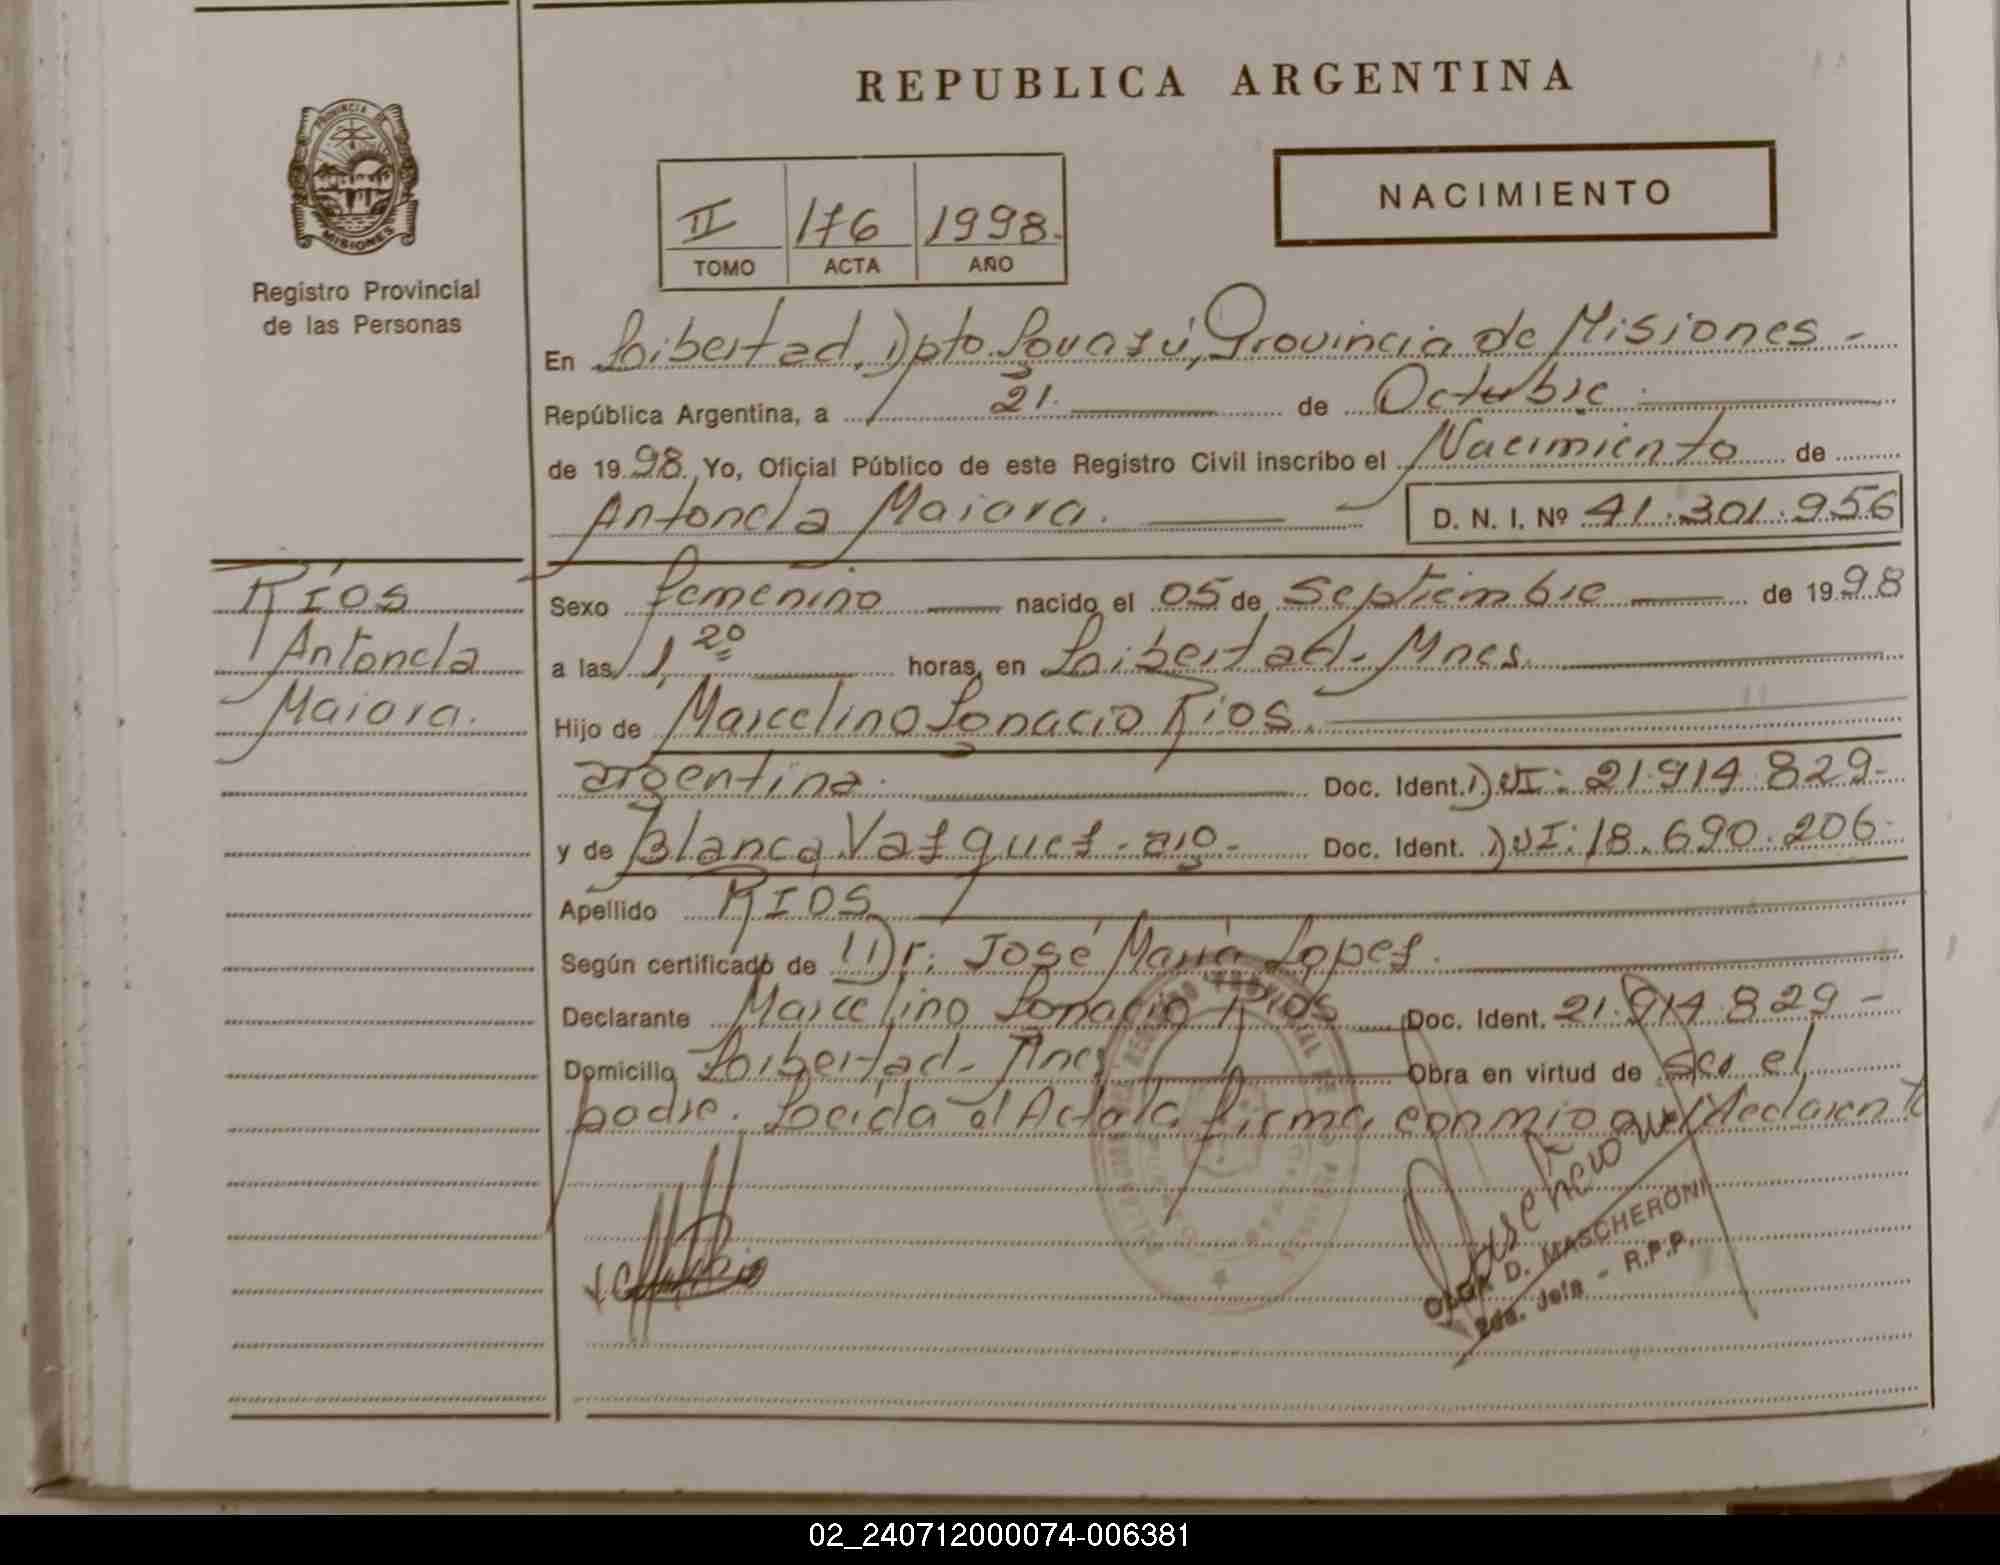 REPUBLICA ARGENTINA
PROVINCIA DE
MISIONES
Registro Provincial
de las Personas
NACIMIENTO
II 176 1998.
TOMO ACTA AÑO
En Libertad, Dpto. Iguazú, Provincia de Misiones -
República Argentina, a 21. de Octubre
de 19 98. Yo, Oficial Público de este Registro Civil inscribo el Nacimiento de
Antonela Maiara. D. N. I. Nº 41.301.956
Ríos
Antonela
Maiara.
Sexo femenino nacido el 05 de Septiembre de 19 98
a las 1,20 horas, en Libertad - Mnes.
Hijo de Marcelino Ignacio Ríos.
argentina. Doc. Ident. DNI: 21.914.829-
y de Blanca Vasquez - arg - Doc. Ident. DNI: 18.690.206-
Apellido RIOS
Según certificado de Dr. José María Lopez.
Declarante Marcelino Ignacio Rios Doc. Ident. 21.914.829-
Domicilio Libertad - Mnes Obra en virtud de ser el
padre. Leída el Acta la firma conmigo el declarante
OLGA D. MASCHERONI
2da. Jefa - R.P.P.
02_240712000074-006381